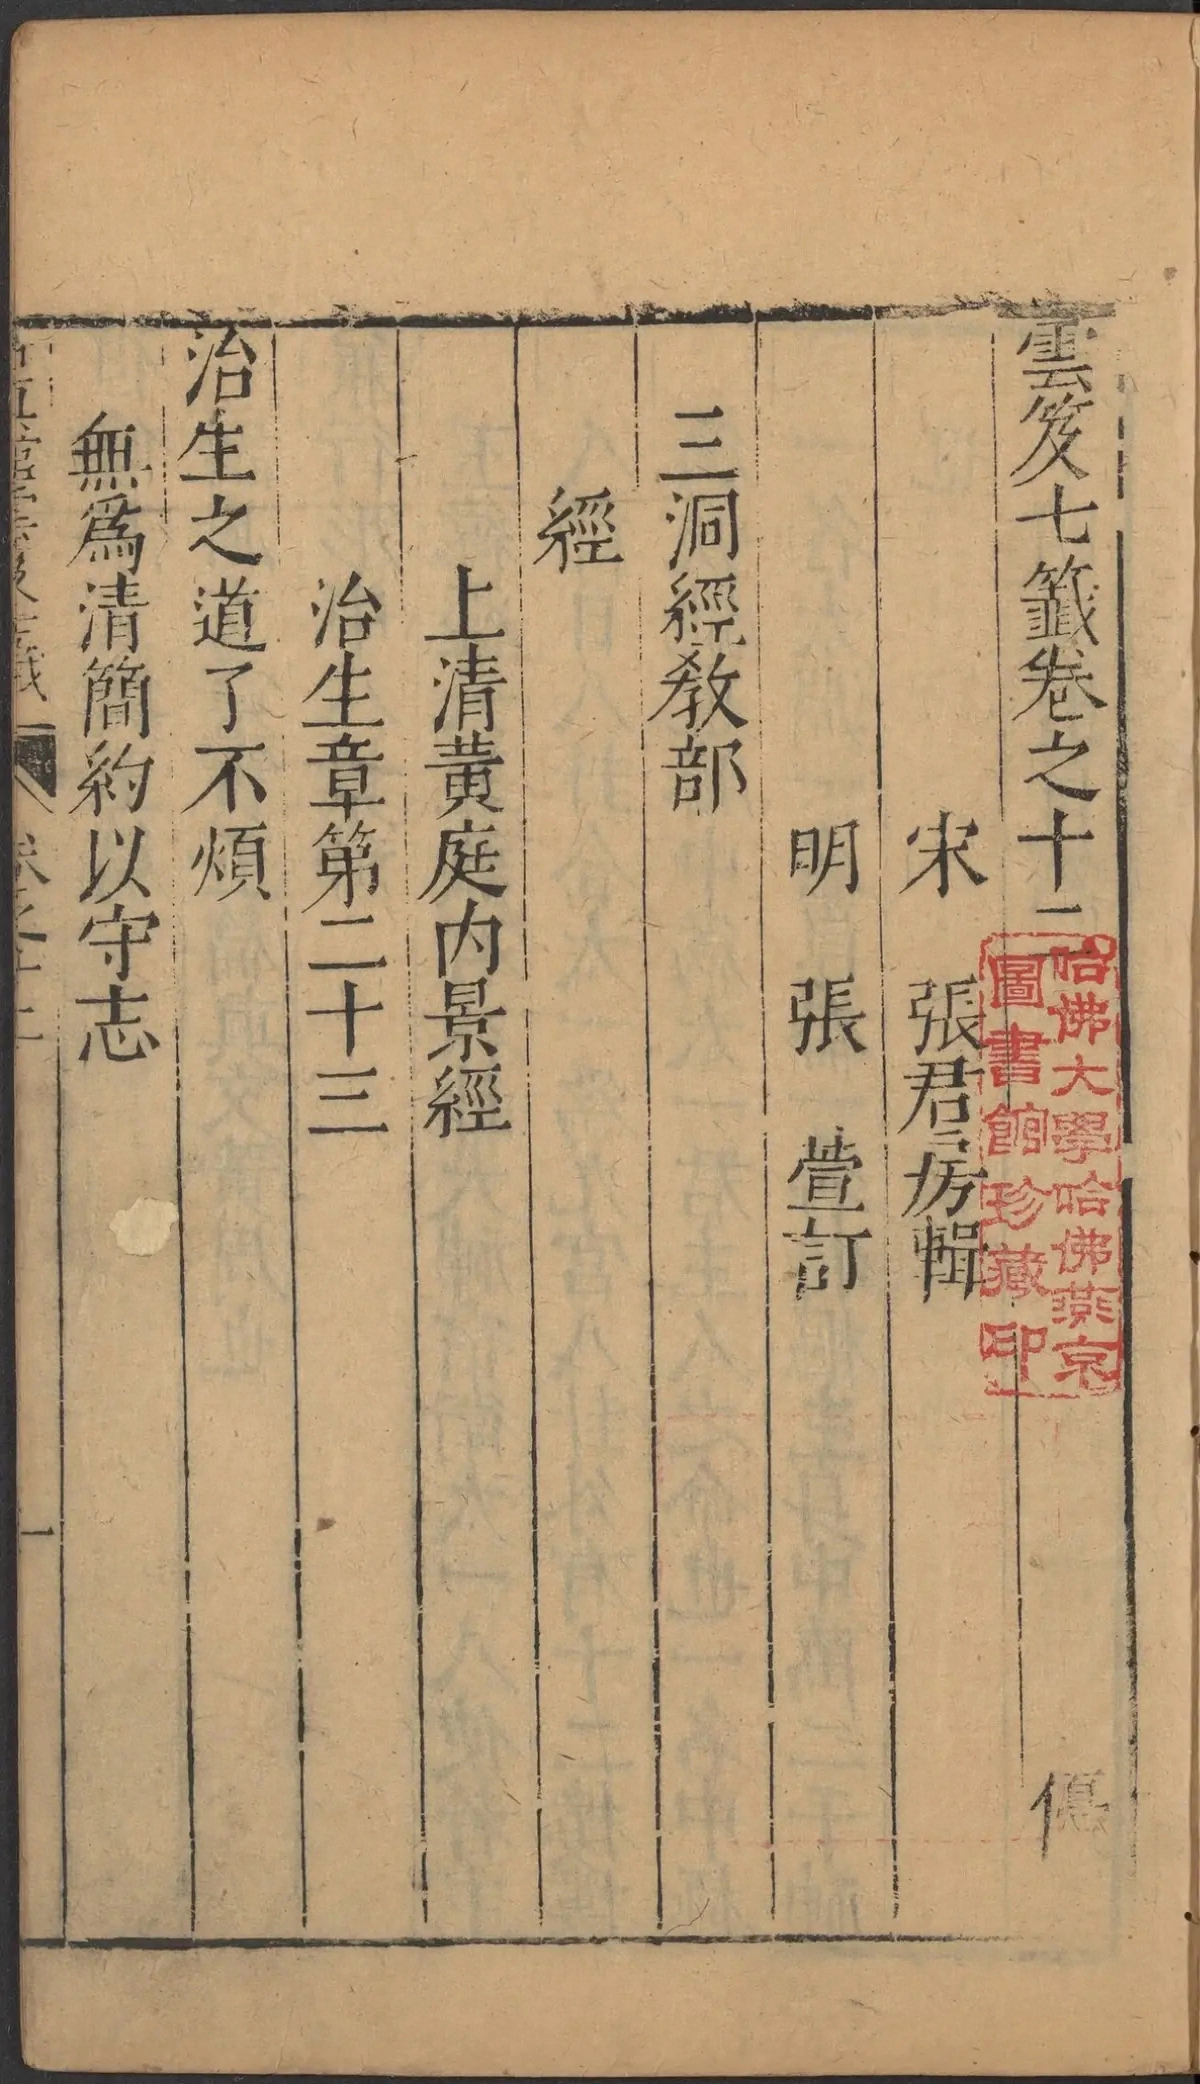 雲笈七籤卷之十二
優
宋 張君房輯
明 張 萱訂
三洞經教部
經
上清黃庭內景經
治生章第二十三
治生之道了不煩
無爲清簡約以守志
卷之十二
一
哈佛大學哈佛燕京
圖書館珍藏印